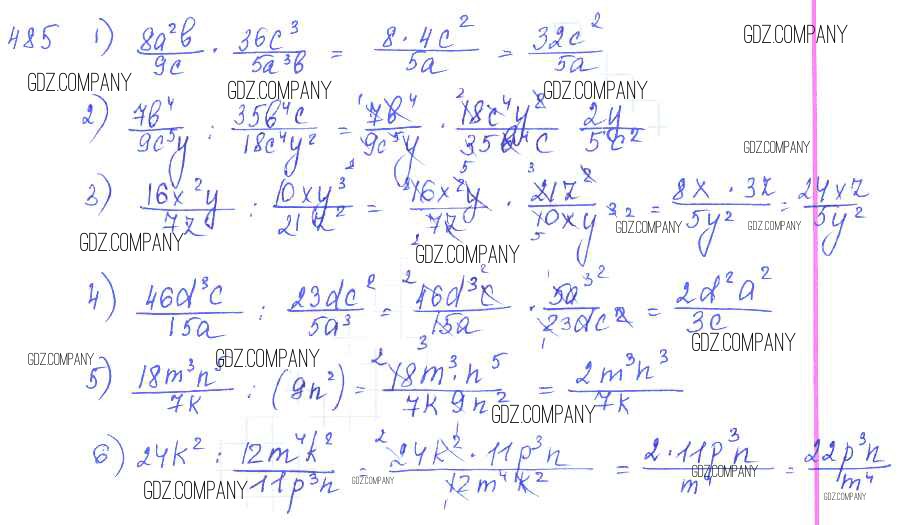 485 1) 8a²b/9c · 36c³/5a³b = 8·4c²/5a = 32c²/5a
GDZ.COMPANY
GDZ.COMPANY GDZ.COMPANY GDZ.COMPANY
2) 7b⁴/9c⁵y : 35b⁴c/18c⁴y² = 7b⁴/9c⁵y · 18c⁴y²/35b⁴c 2y/5c²
GDZ.COMPANY
3) 16x²y/7z : 10xy³/21z² = 16x²y/7z · 21z²/10xy³ = 8x · 3z/5y² = 24xz/5y²
GDZ.COMPANY GDZ.COMPANY GDZ.COMPANY GDZ.COMPANY
4) 46d³c/15a : 23dc²/5a³ = 46d³c/15a · 5a³/23dc² = 2d²a²/3c
GDZ.COMPANY GDZ.COMPANY GDZ.COMPANY
5) 18m³n⁵/7k : (9n²) = 18m³·n⁵/7k 9n² = 2m³n³/7k
GDZ.COMPANY
6) 24k² : 12m⁴k²/11p³n = 24k²·11p³n/12m⁴k² = 2·11p³n/m⁴ = 22p³n/m⁴
GDZ.COMPANY GDZ.COMPANY GDZ.COMPANY GDZ.COMPANY